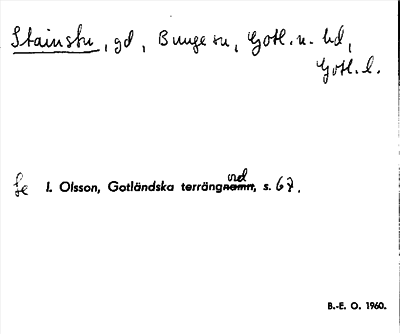 Stainstu, gd, Bunge sn, Gotl. n. hd,
Gotl. l.
Se I. Olsson, Gotländska terrängnamn, ord s. 67.
B.-E. O. 1960.